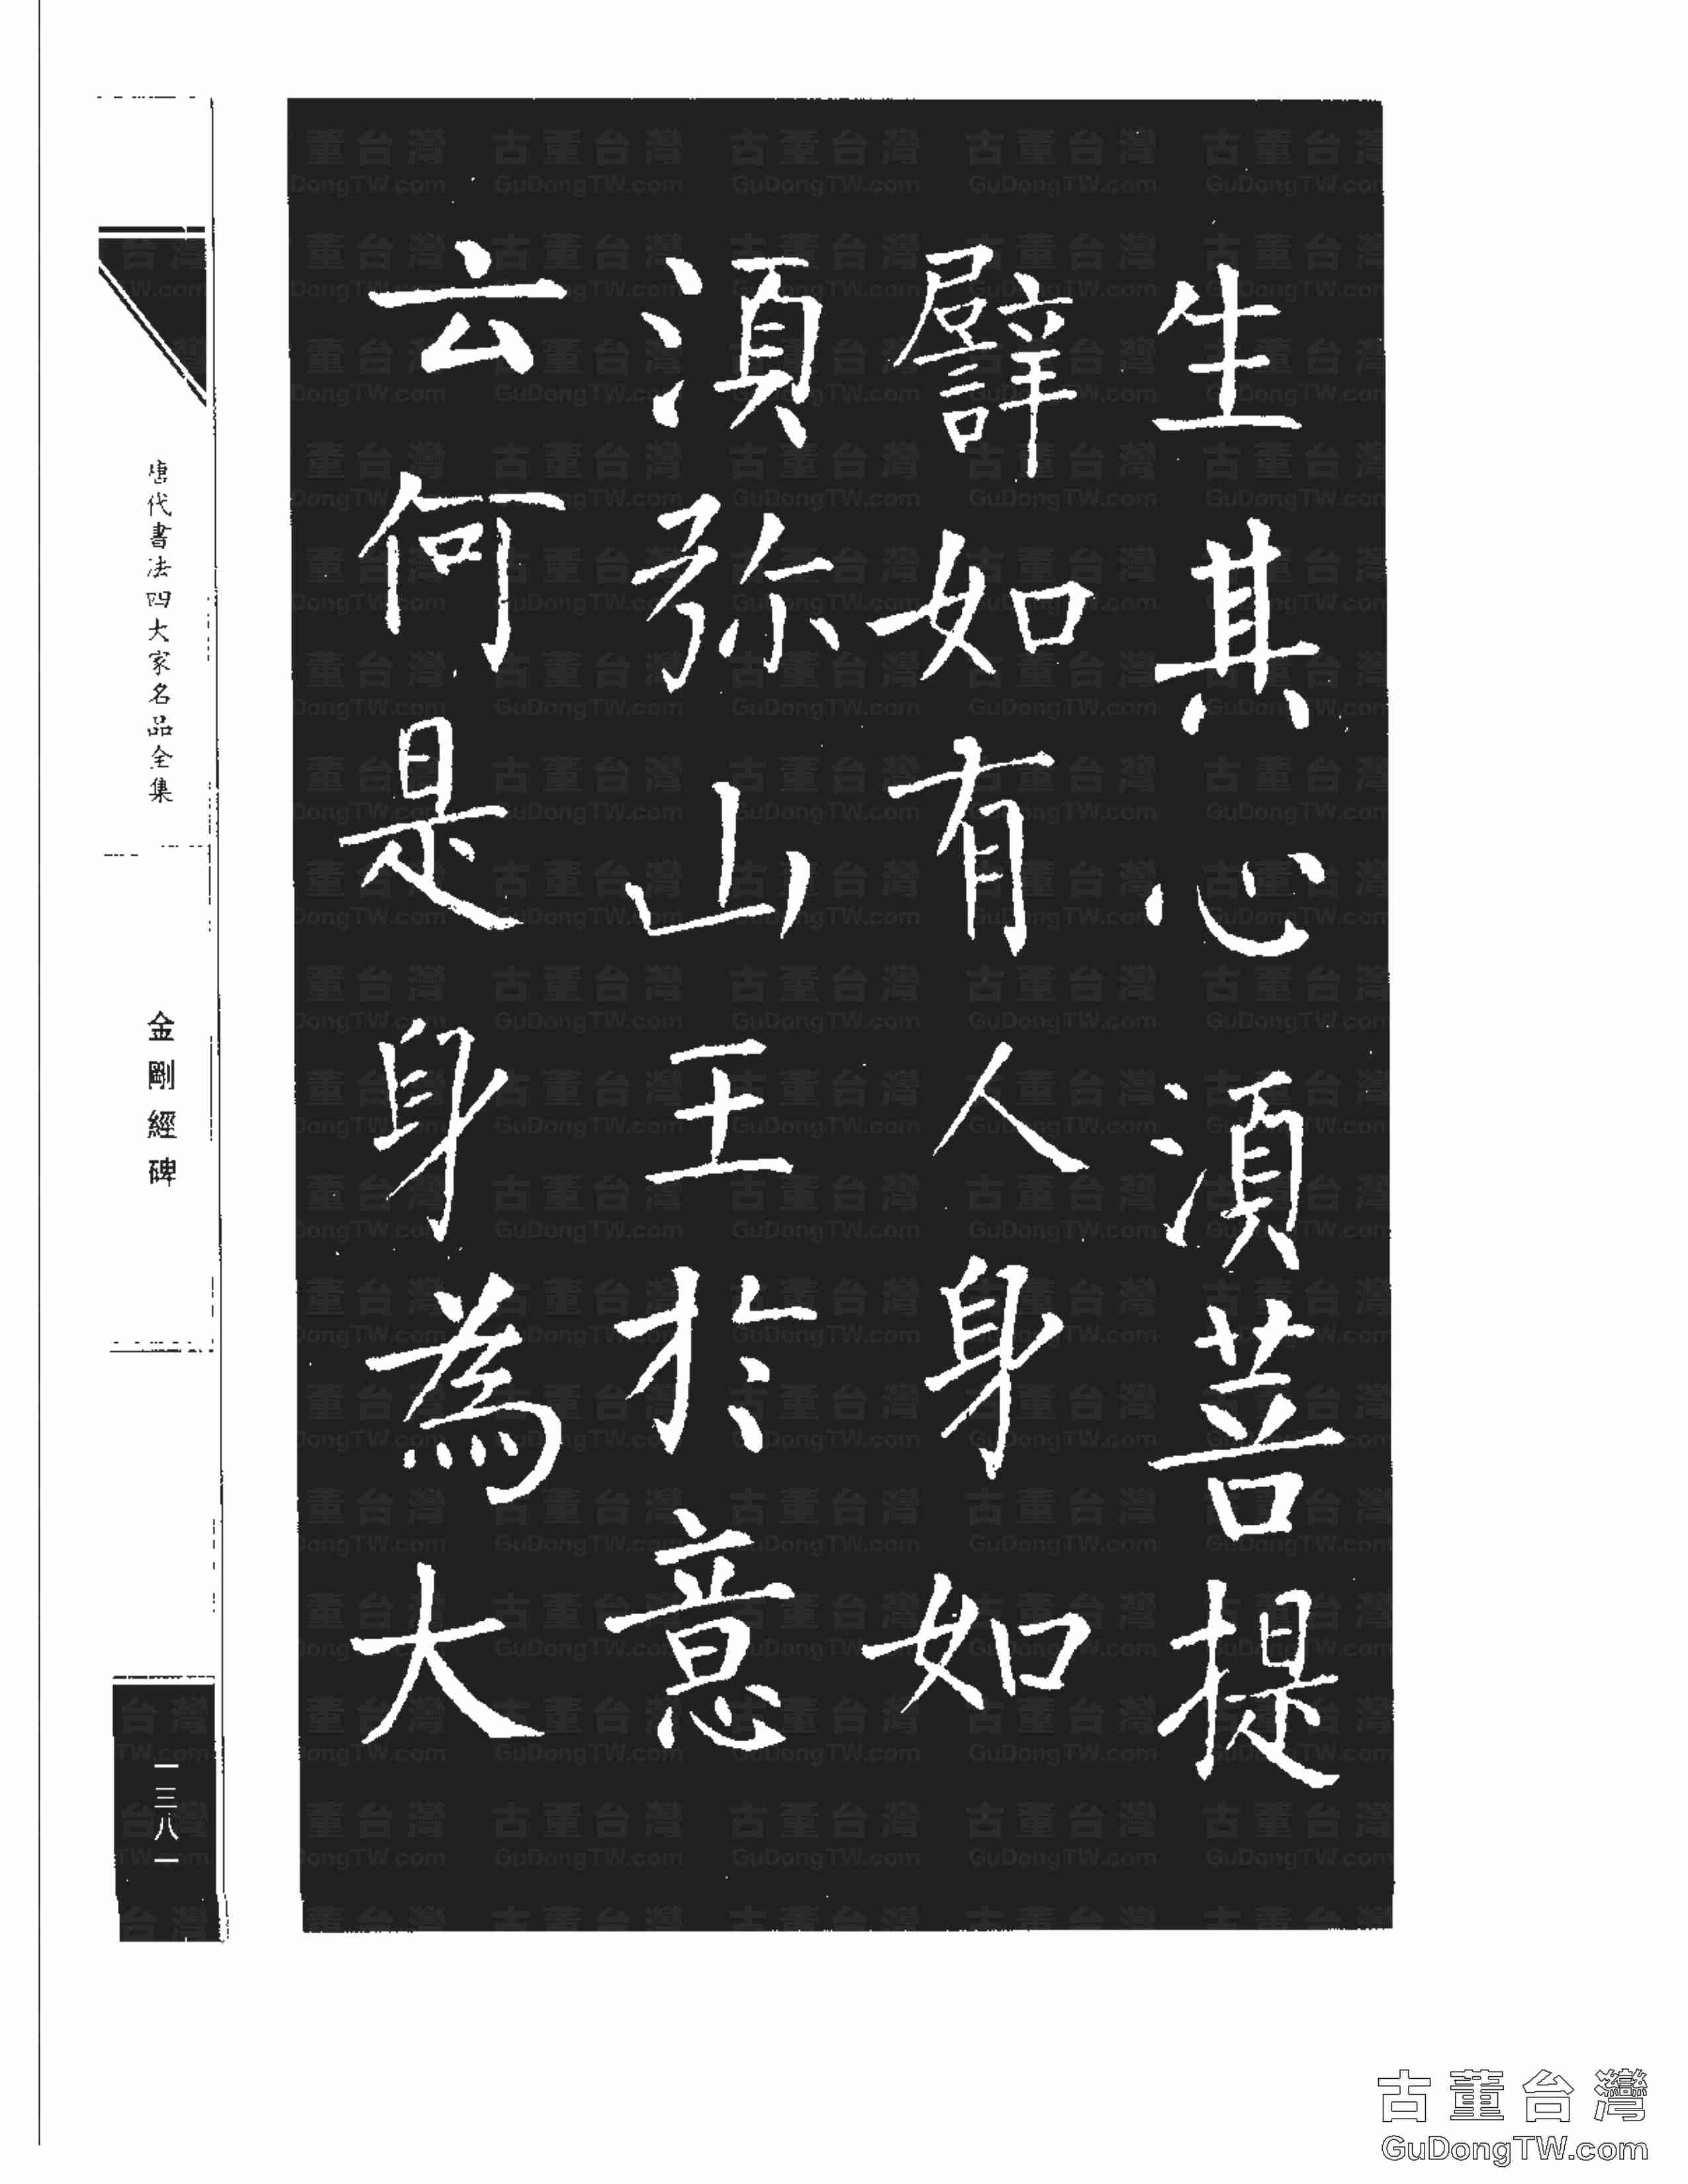 生其心湏菩提
譬如有人身如
湏弥山王於意
云何是身為大
唐代書法四大家名品全集
金剛經碑
一三八一
古董台灣
GuDongTW.com